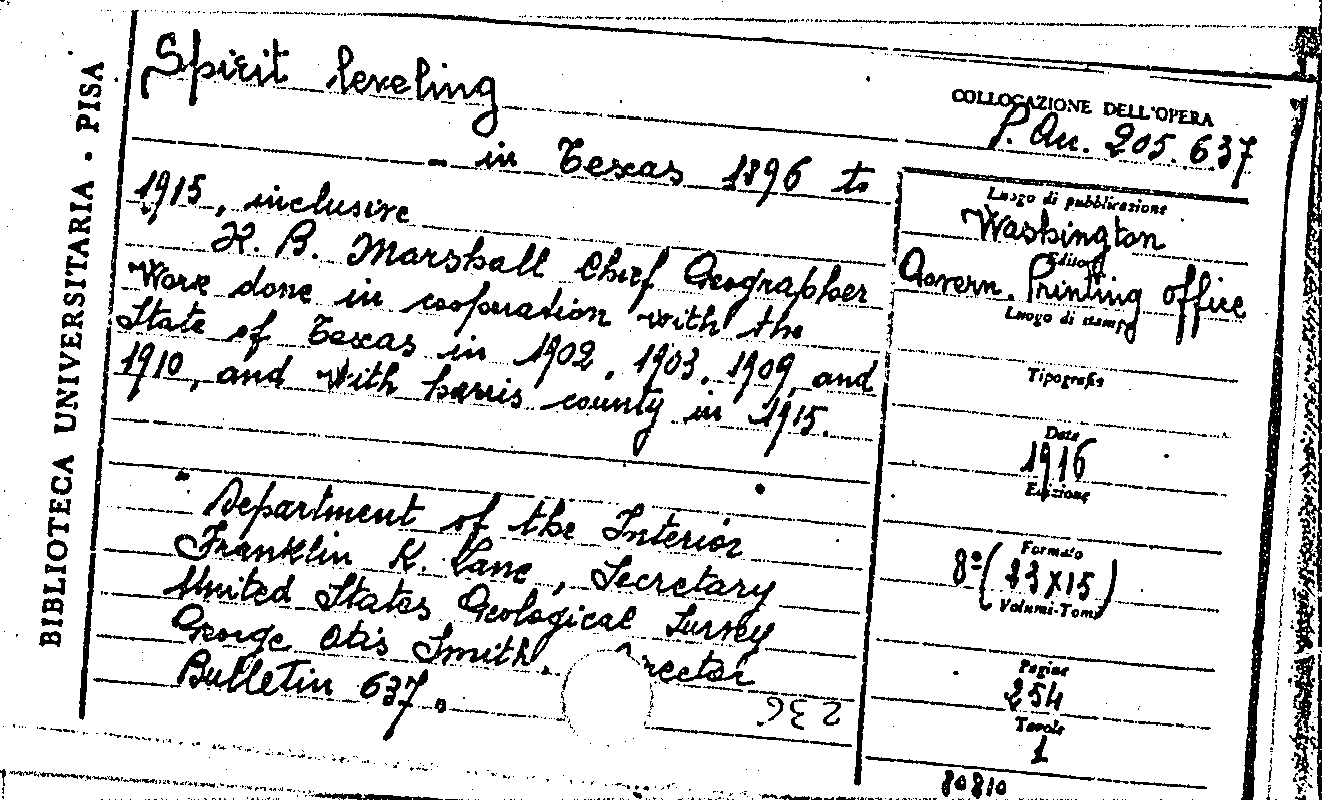 BIBLIOTECA UNIVERSITARIA - PISA
Spirit leveling
- in Texas 1896 to
1915, inclusive
R. B. Marshall Chief Geographer
Work done in cooperation with the
State of Texas in 1902, 1903, 1909, and
1910, and with harris county in 1915.
" Department of the Interior
Franklin K. Lane, Secretary
United States Geological Survey
George Otis Smith, Director
Bulletin 637. "
236
COLLOCAZIONE DELL'OPERA
P. Au. 205. 637
Luogo di pubblicazione
Washington
Editore
Govern. Printing office
Luogo di stampa
Tipografia
Data
1916
Edizione
Formato
8º (23x15)
Volumi-Tomi
Pagine
254
Tavole
1
80810